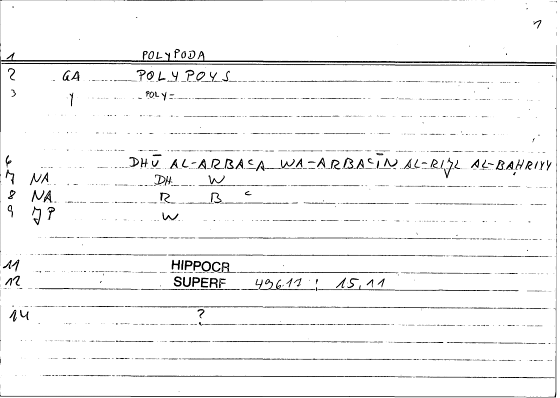 1
1 POLYPODA
2 GA POLYPOYS
3 Y POLY-
6 DHŪ AL-ARBACA WA-ARBACĪN AL-RIJL AL-BAḤRIYY
7 NA DH W
8 NA R B C
9 JP W
11 HIPPOCR
12 SUPERF 496.11 ; 15,11
14 ?